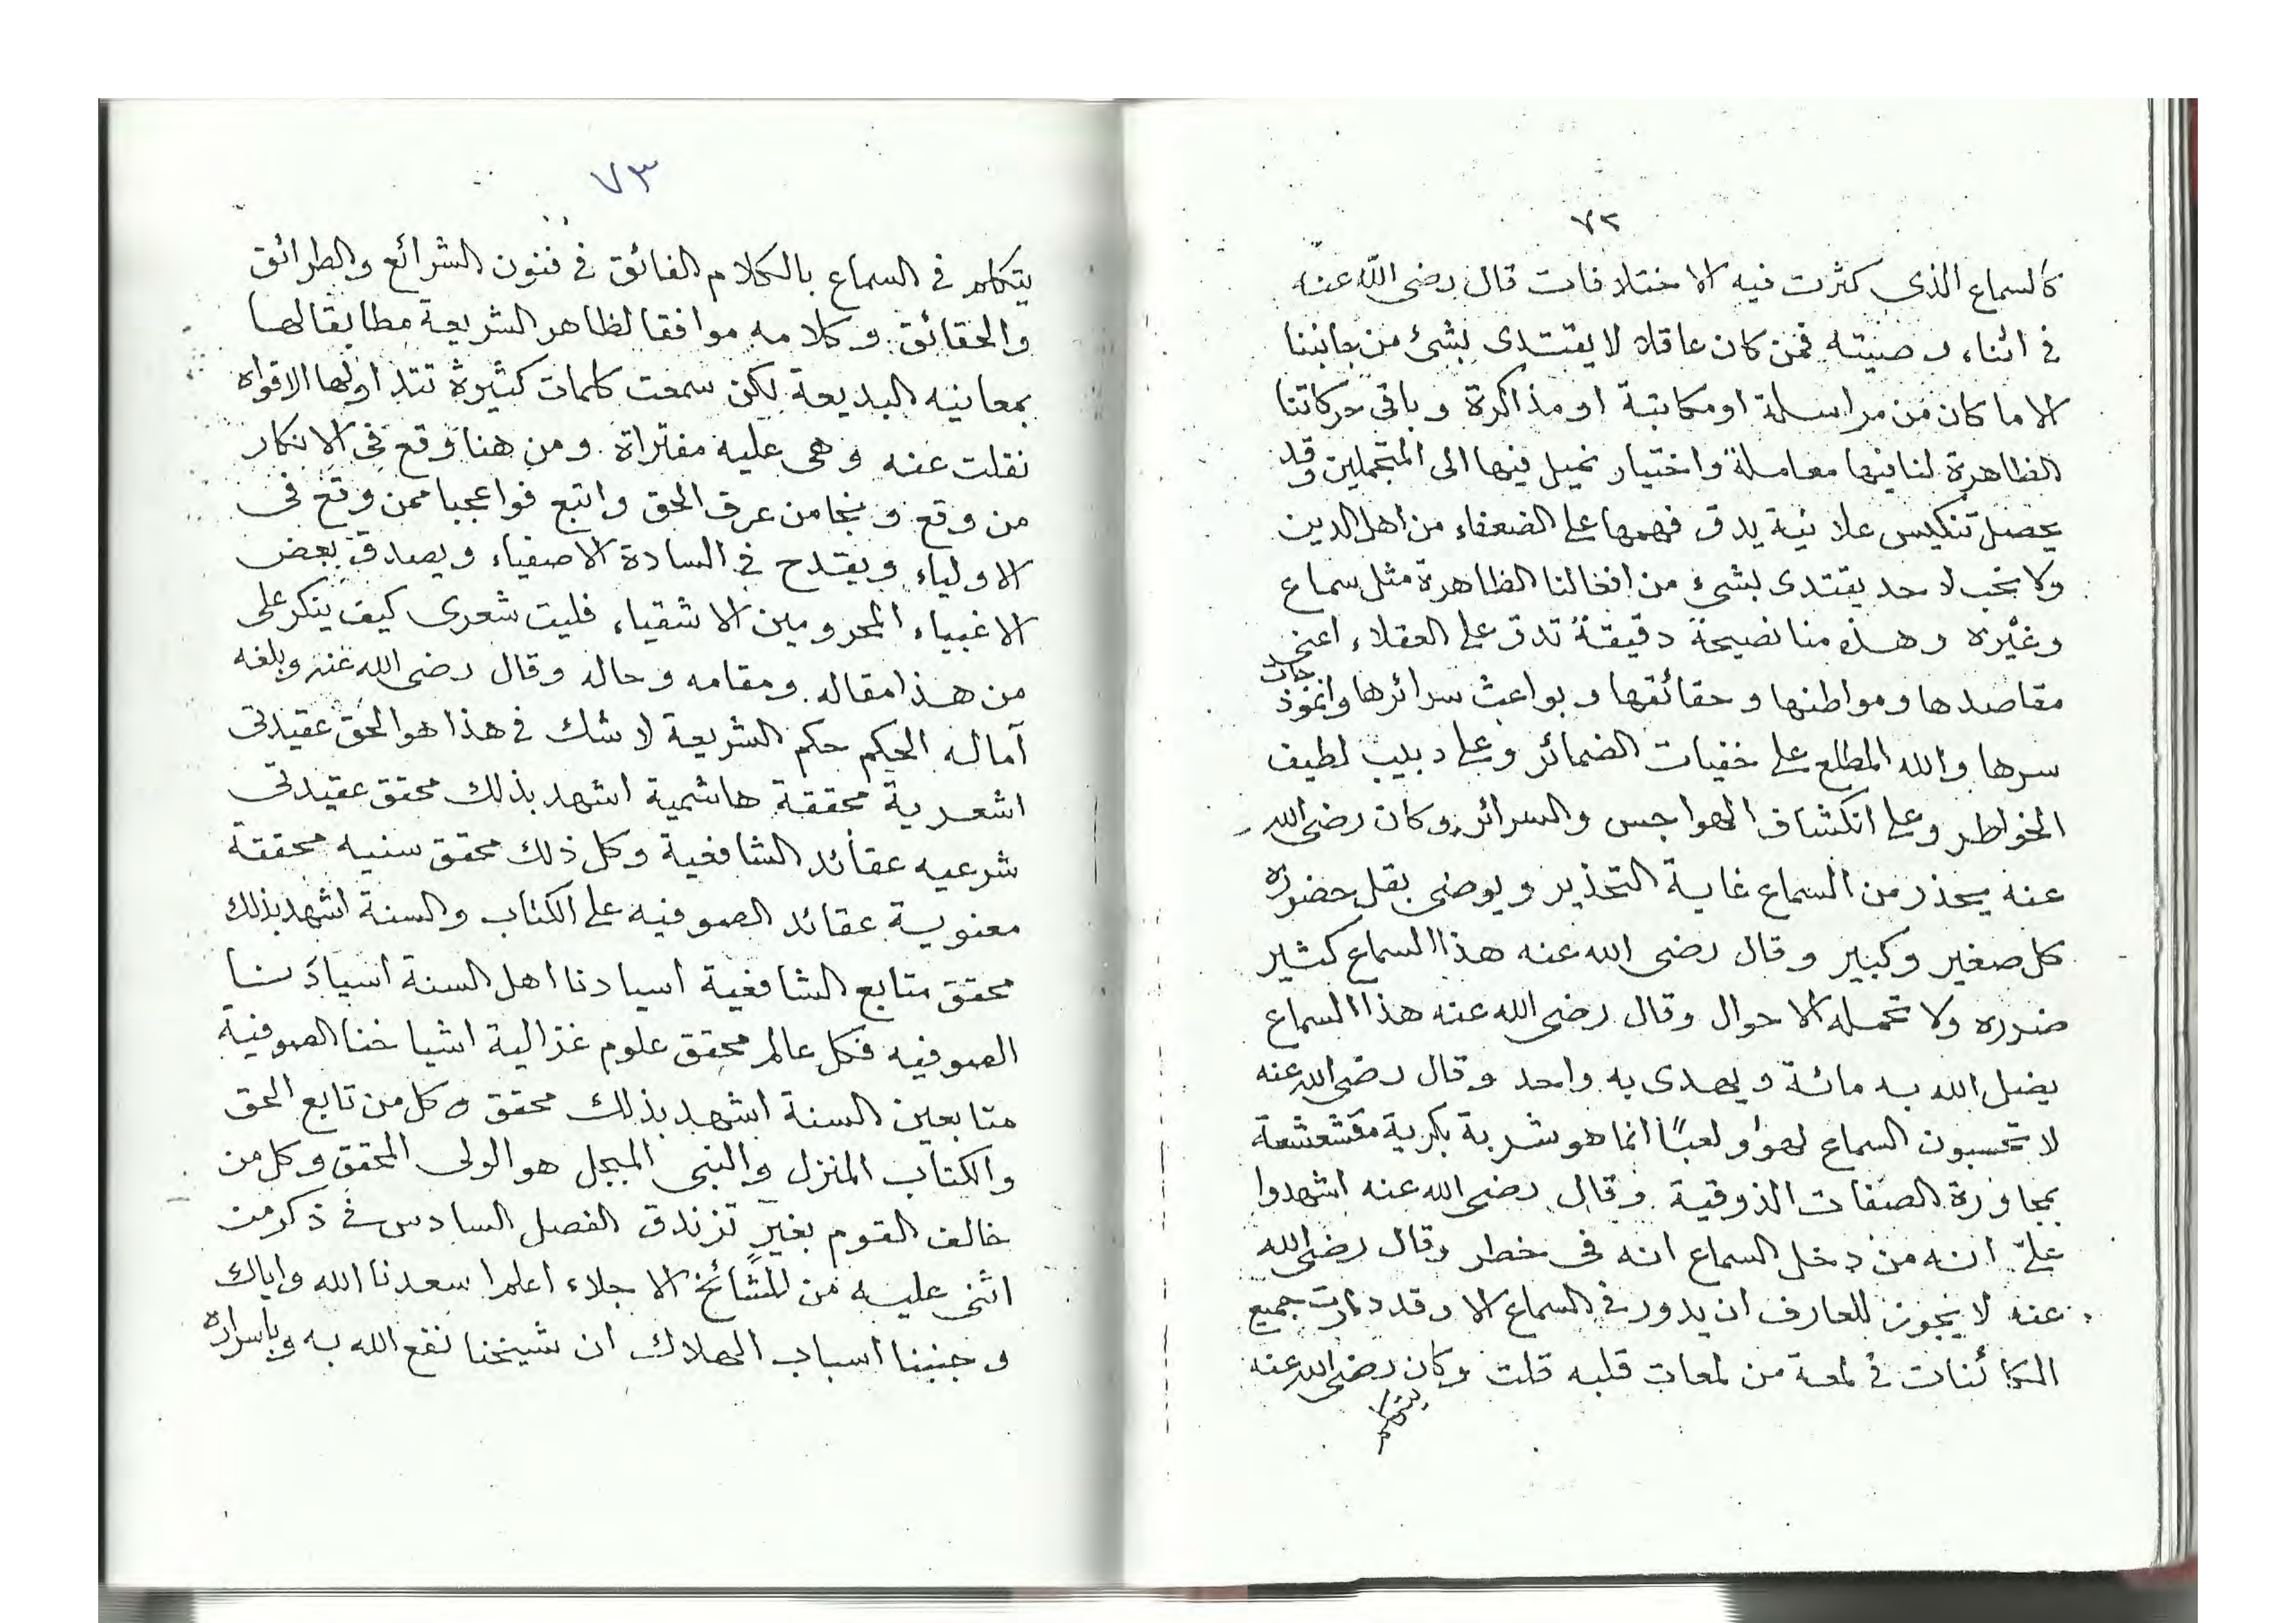 ٧٢
كالسماع الذي كثرت فيه الاختلافات قال رضى الله عنه
في اثناء وصيته فمن كان عاقلا لا يقتدى بشئ من جانبنا
الا ما كان من مراسلة او مكاتبة او مذاكرة و باقي حركاتنا
الظاهرة لنا فيها معاملة واختيار نميل فيها الى المتجملين وقد
يحصل تنكيس علانية يدق فهمها على الضعفاء من اهل الدين
ولا نحب لاحد يقتدى بشئ من افعالنا الظاهرة مثل سماع
وغيره وهذه منا نصيحة دقيقة تدق على العقلاء اعنى
مقاصدها ومواطنها وحقائقها وبواعث سرائرها وانموذجات
سرها والله المطلع على خفيات الضمائر وعلى دبيب لطيف
الخواطر وعلى انكشاف الهواجس والسرائر وكان رضى الله
عنه يحذر من السماع غاية التحذير ويوصى بقل حضوره
كل صغير وكبير وقال رضى الله عنه هذا السماع كثير
ضرره ولا تحمله الاحوال وقال رضى الله عنه هذا السماع
يضل الله به مائة ويهدى به واحد وقال رضى الله عنه
لا تحسبون السماع لهوا ولعبًا انما هو شربة بكرية مقشعشعة
بمجاورة الصفات الذوقية وقال رضى الله عنه اشهدوا
عليّ انه من دخل السماع انه في خطر وقال رضى الله
عنه لا يجوز للعارف ان يدور في السماع الا وقد دارت جميع
الكائنات في لمعة من لمعات قلبه قلت وكان رضى الله عنه
يتكلم
٧٣
يتكلم في السماع بالكلام الفائق في فنون الشرائع والطرائق
والحقائق وكلامه موافقا لظاهر الشريعة مطابقا لها
بمعانيه البديعة لكن سمعت كلمات كثيرة تتداولها الافواه
نقلت عنه وهى عليه مفتراة ومن هنا وقع في الانكار
من وقع ونجا من عرف الحق واتبع فواعجبا ممن وقع في
الاولياء ويقدح في السادة الاصفياء ويصدق بعض
الاغبياء المحرومين الاشقياء فليت شعرى كيف ينكر على
من هذا مقاله ومقامه وحاله وقال رضى الله عنه وبلغه
آماله الحكم حكم الشريعة لا شك في هذا هو الحق عقيدتي
اشعرية محققة هاشمية اشهد بذلك محقق عقيدتي
شرعيه عقائد الشافعية وكل ذلك محقق سنيه محققة
معنوية عقائد الصوفيه على الكتاب والسنة اشهد بذلك
محقق متابع الشافعية اسيادنا اهل السنة اسيادنا
الصوفيه فكل عالم محقق علوم غزالية اشياخنا الصوفية
متابعين السنة اشهد بذلك محقق وكل من تابع الحق
والكتاب المنزل والنبي المبجل هو الولى المحقق وكل من
خالف القوم بغيرٍ تزندق الفصل السادس في ذكر من
اثنى عليه من المشائخ الاجلاء اعلم اسعدنا الله واياك
وجنبنا اسباب الهلاك ان شيخنا نفع الله به وباسراره